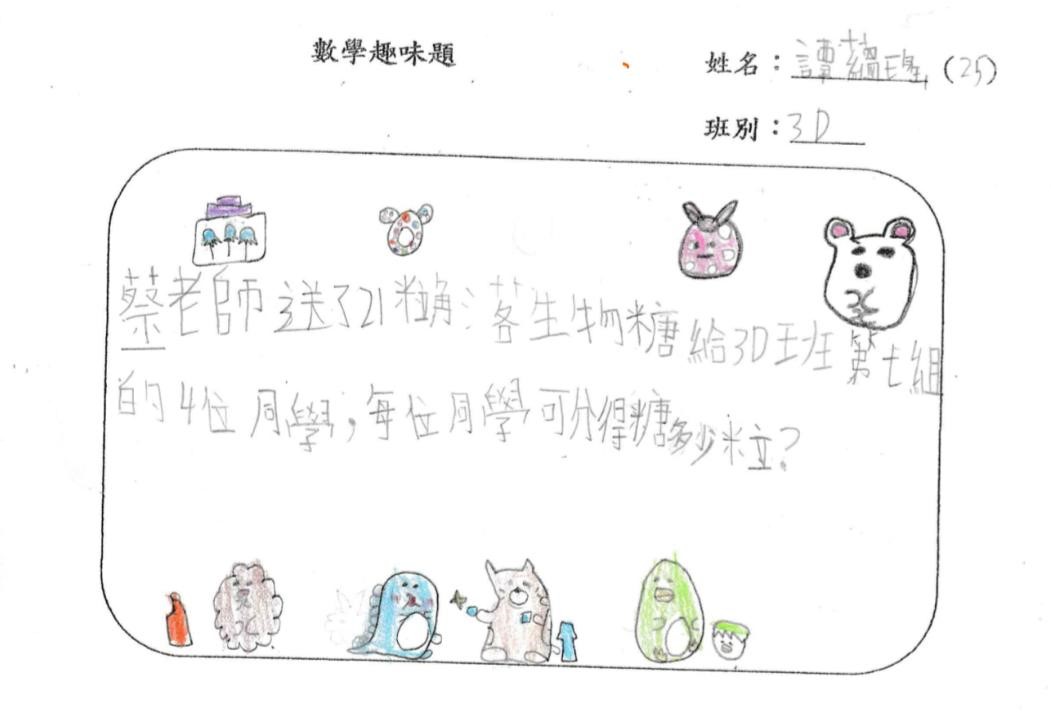 數學趣味題
姓名：譚蘊瑆 (25)
班別：3D
蔡老師送了21粒角落生物糖給3D班第七組
的4位同學，每位同學可分得糖多少粒？